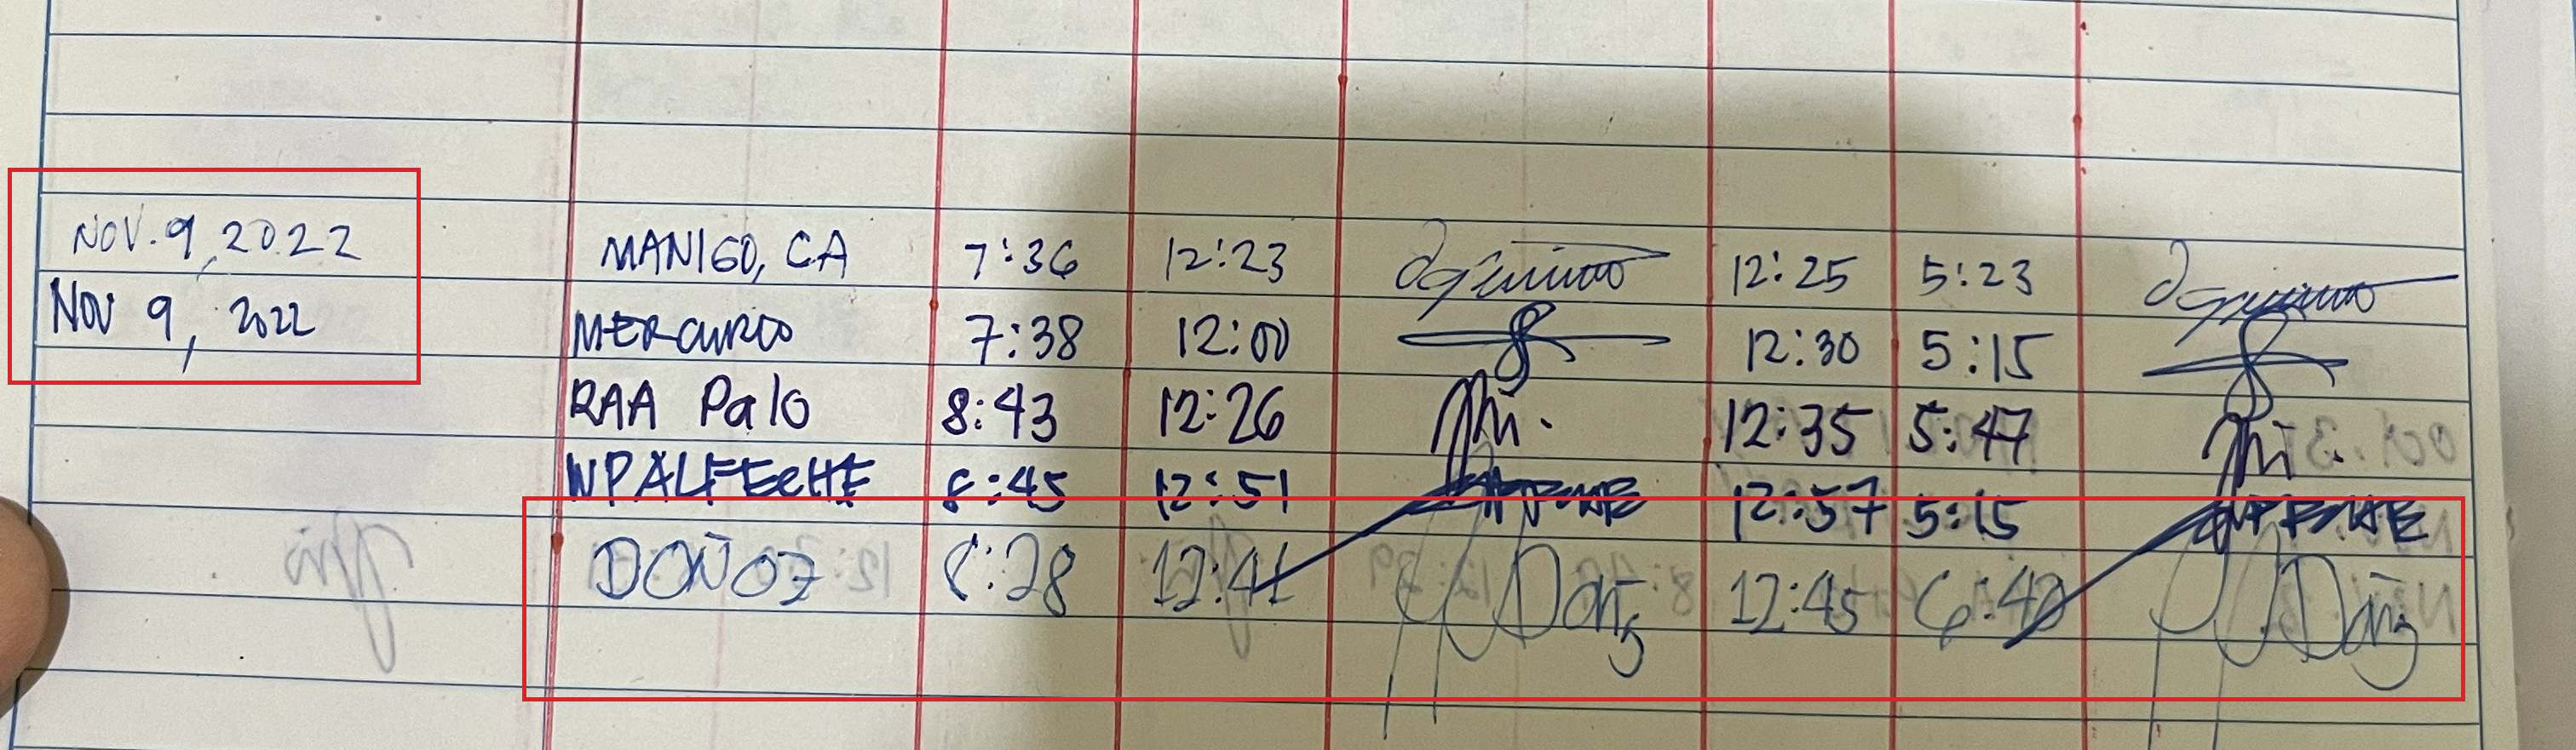 NOV. 9, 2022 MANIGO, CA 7:36 12:23 12:25 5:23
NOV 9, 2022 MERCURIO 7:38 12:00 12:30 5:15
RAA Palo 8:43 12:26 12:35 5:47
WPALFECHE 8:45 12:51 12:57 5:15
DOÑOZ 8:28 12:41 Doñz 12:45 6:40 Doñz